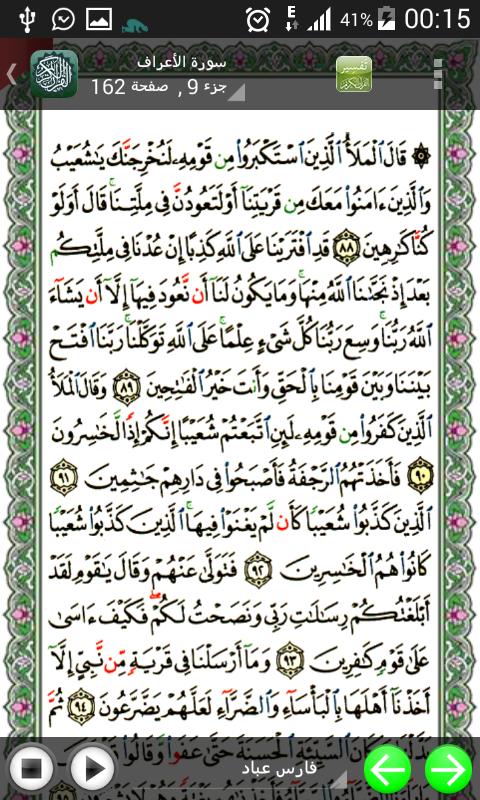 41% 00:15
سورة الأعراف
جزء 9 , صفحة 162
تفسير
۞ قَالَ ٱلْمَلَأُ ٱلَّذِينَ ٱسْتَكْبَرُوا۟ مِن قَوْمِهِۦ لَنُخْرِجَنَّكَ يَٰشُعَيْبُ
وَٱلَّذِينَ ءَامَنُوا۟ مَعَكَ مِن قَرْيَتِنَآ أَوْ لَتَعُودُنَّ فِى مِلَّتِنَا ۚ قَالَ أَوَلَوْ
كُنَّا كَٰرِهِينَ ٨٨ قَدِ ٱفْتَرَيْنَا عَلَى ٱللَّهِ كَذِبًا إِنْ عُدْنَا فِى مِلَّتِكُم
بَعْدَ إِذْ نَجَّىٰنَا ٱللَّهُ مِنْهَا ۚ وَمَا يَكُونُ لَنَآ أَن نَّعُودَ فِيهَآ إِلَّآ أَن يَشَآءَ
ٱللَّهُ رَبُّنَا ۚ وَسِعَ رَبُّنَا كُلَّ شَىْءٍ عِلْمًا ۚ عَلَى ٱللَّهِ تَوَكَّلْنَا ۚ رَبَّنَا ٱفْتَحْ
بَيْنَنَا وَبَيْنَ قَوْمِنَا بِٱلْحَقِّ وَأَنتَ خَيْرُ ٱلْفَٰتِحِينَ ٨٩ وَقَالَ ٱلْمَلَأُ
ٱلَّذِينَ كَفَرُوا۟ مِن قَوْمِهِۦ لَئِنِ ٱتَّبَعْتُمْ شُعَيْبًا إِنَّكُمْ إِذًا لَّخَٰسِرُونَ
٩٠ فَأَخَذَتْهُمُ ٱلرَّجْفَةُ فَأَصْبَحُوا۟ فِى دَارِهِمْ جَٰثِمِينَ ٩١
ٱلَّذِينَ كَذَّبُوا۟ شُعَيْبًا كَأَن لَّمْ يَغْنَوْا۟ فِيهَا ۚ ٱلَّذِينَ كَذَّبُوا۟ شُعَيْبًا
كَانُوا۟ هُمُ ٱلْخَٰسِرِينَ ٩٢ فَتَوَلَّىٰ عَنْهُمْ وَقَالَ يَٰقَوْمِ لَقَدْ
أَبْلَغْتُكُمْ رِسَٰلَٰتِ رَبِّى وَنَصَحْتُ لَكُمْ ۖ فَكَيْفَ ءَاسَىٰ
عَلَىٰ قَوْمٍ كَٰفِرِينَ ٩٣ وَمَآ أَرْسَلْنَا فِى قَرْيَةٍ مِّن نَّبِىٍّ إِلَّآ
أَخَذْنَآ أَهْلَهَا بِٱلْبَأْسَآءِ وَٱلضَّرَّآءِ لَعَلَّهُمْ يَضَّرَّعُونَ ٩٤ ثُمَّ
بَدَّلْنَا مَكَانَ ٱلسَّيِّئَةِ ٱلْحَسَنَةَ حَتَّىٰ عَفَوا۟ وَّقَالُوا۟
فارس عباد